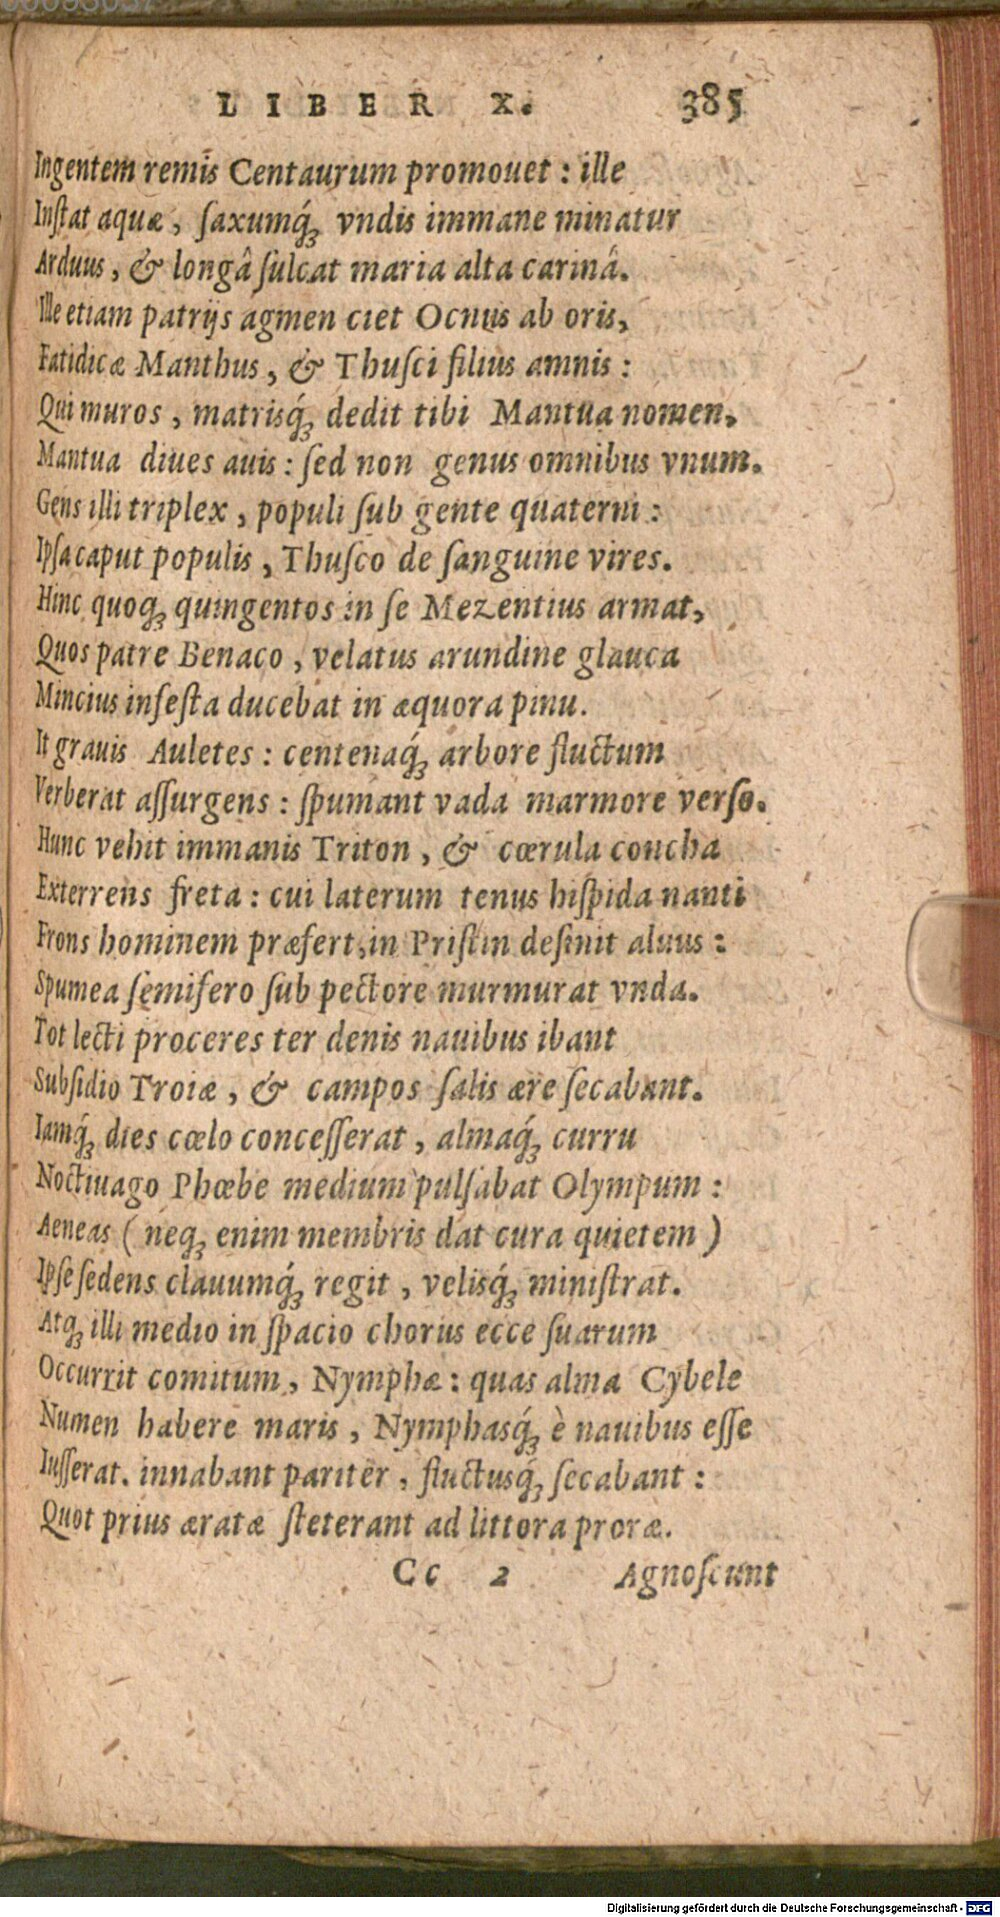 LIBER X. 385
Ingentem remis Centaurum promouet : ille
Inſtat aquæ , ſaxumq́ꝫ vndis immane minatur
Arduus , & longâ ſulcat maria alta carinâ.
Ille etiam patrijs agmen ciet Ocnus ab oris,
Fatidicæ Manthus , & Thuſci filius amnis :
Qui muros , matrisq́ꝫ dedit tibi Mantua nomen.
Mantua diues auis : ſed non genus omnibus vnum.
Gens illi triplex , populi ſub gente quaterni :
Ipſa caput populis , Thuſco de ſanguine vires.
Hinc quoqꝫ quingentos in ſe Mezentius armat,
Quos patre Benaco , velatus arundine glauca
Mincius infeſta ducebat in æquora pinu.
It grauis Auletes : centenaq́ꝫ arbore fluctum
Verberat aſſurgens : ſpumant vada marmore verſo.
Hunc vehit immanis Triton , & cœrula concha
Exterrens freta : cui laterum tenus hiſpida nanti
Frons hominem præfert, in Priſtin deſinit aluus :
Spumea ſemifero ſub pectore murmurat vnda.
Tot lecti proceres ter denis nauibus ibant
Subſidio Troiæ , & campos ſalis ære ſecabant.
Iamq́ꝫ dies cœlo conceſſerat , almaq́ꝫ curru
Noctiuago Phœbe medium pulſabat Olympum :
Aeneas ( neqꝫ enim membris dat cura quietem )
Ipſe ſedens clauumq́ꝫ regit , velisq́ꝫ miniſtrat.
Atqꝫ illi medio in ſpacio chorus ecce ſuarum
Occurrit comitum , Nymphæ : quas alma Cybele
Numen habere maris , Nymphasq́ꝫ è nauibus eſſe
Iuſſerat. innabant pariter , fluctusq́ꝫ ſecabant :
Quot prius æratæ ſteterant ad littora proræ.
Cc 2 Agnoſcunt
Digitalisierung gefördert durch die Deutsche Forschungsgemeinschaft - DFG